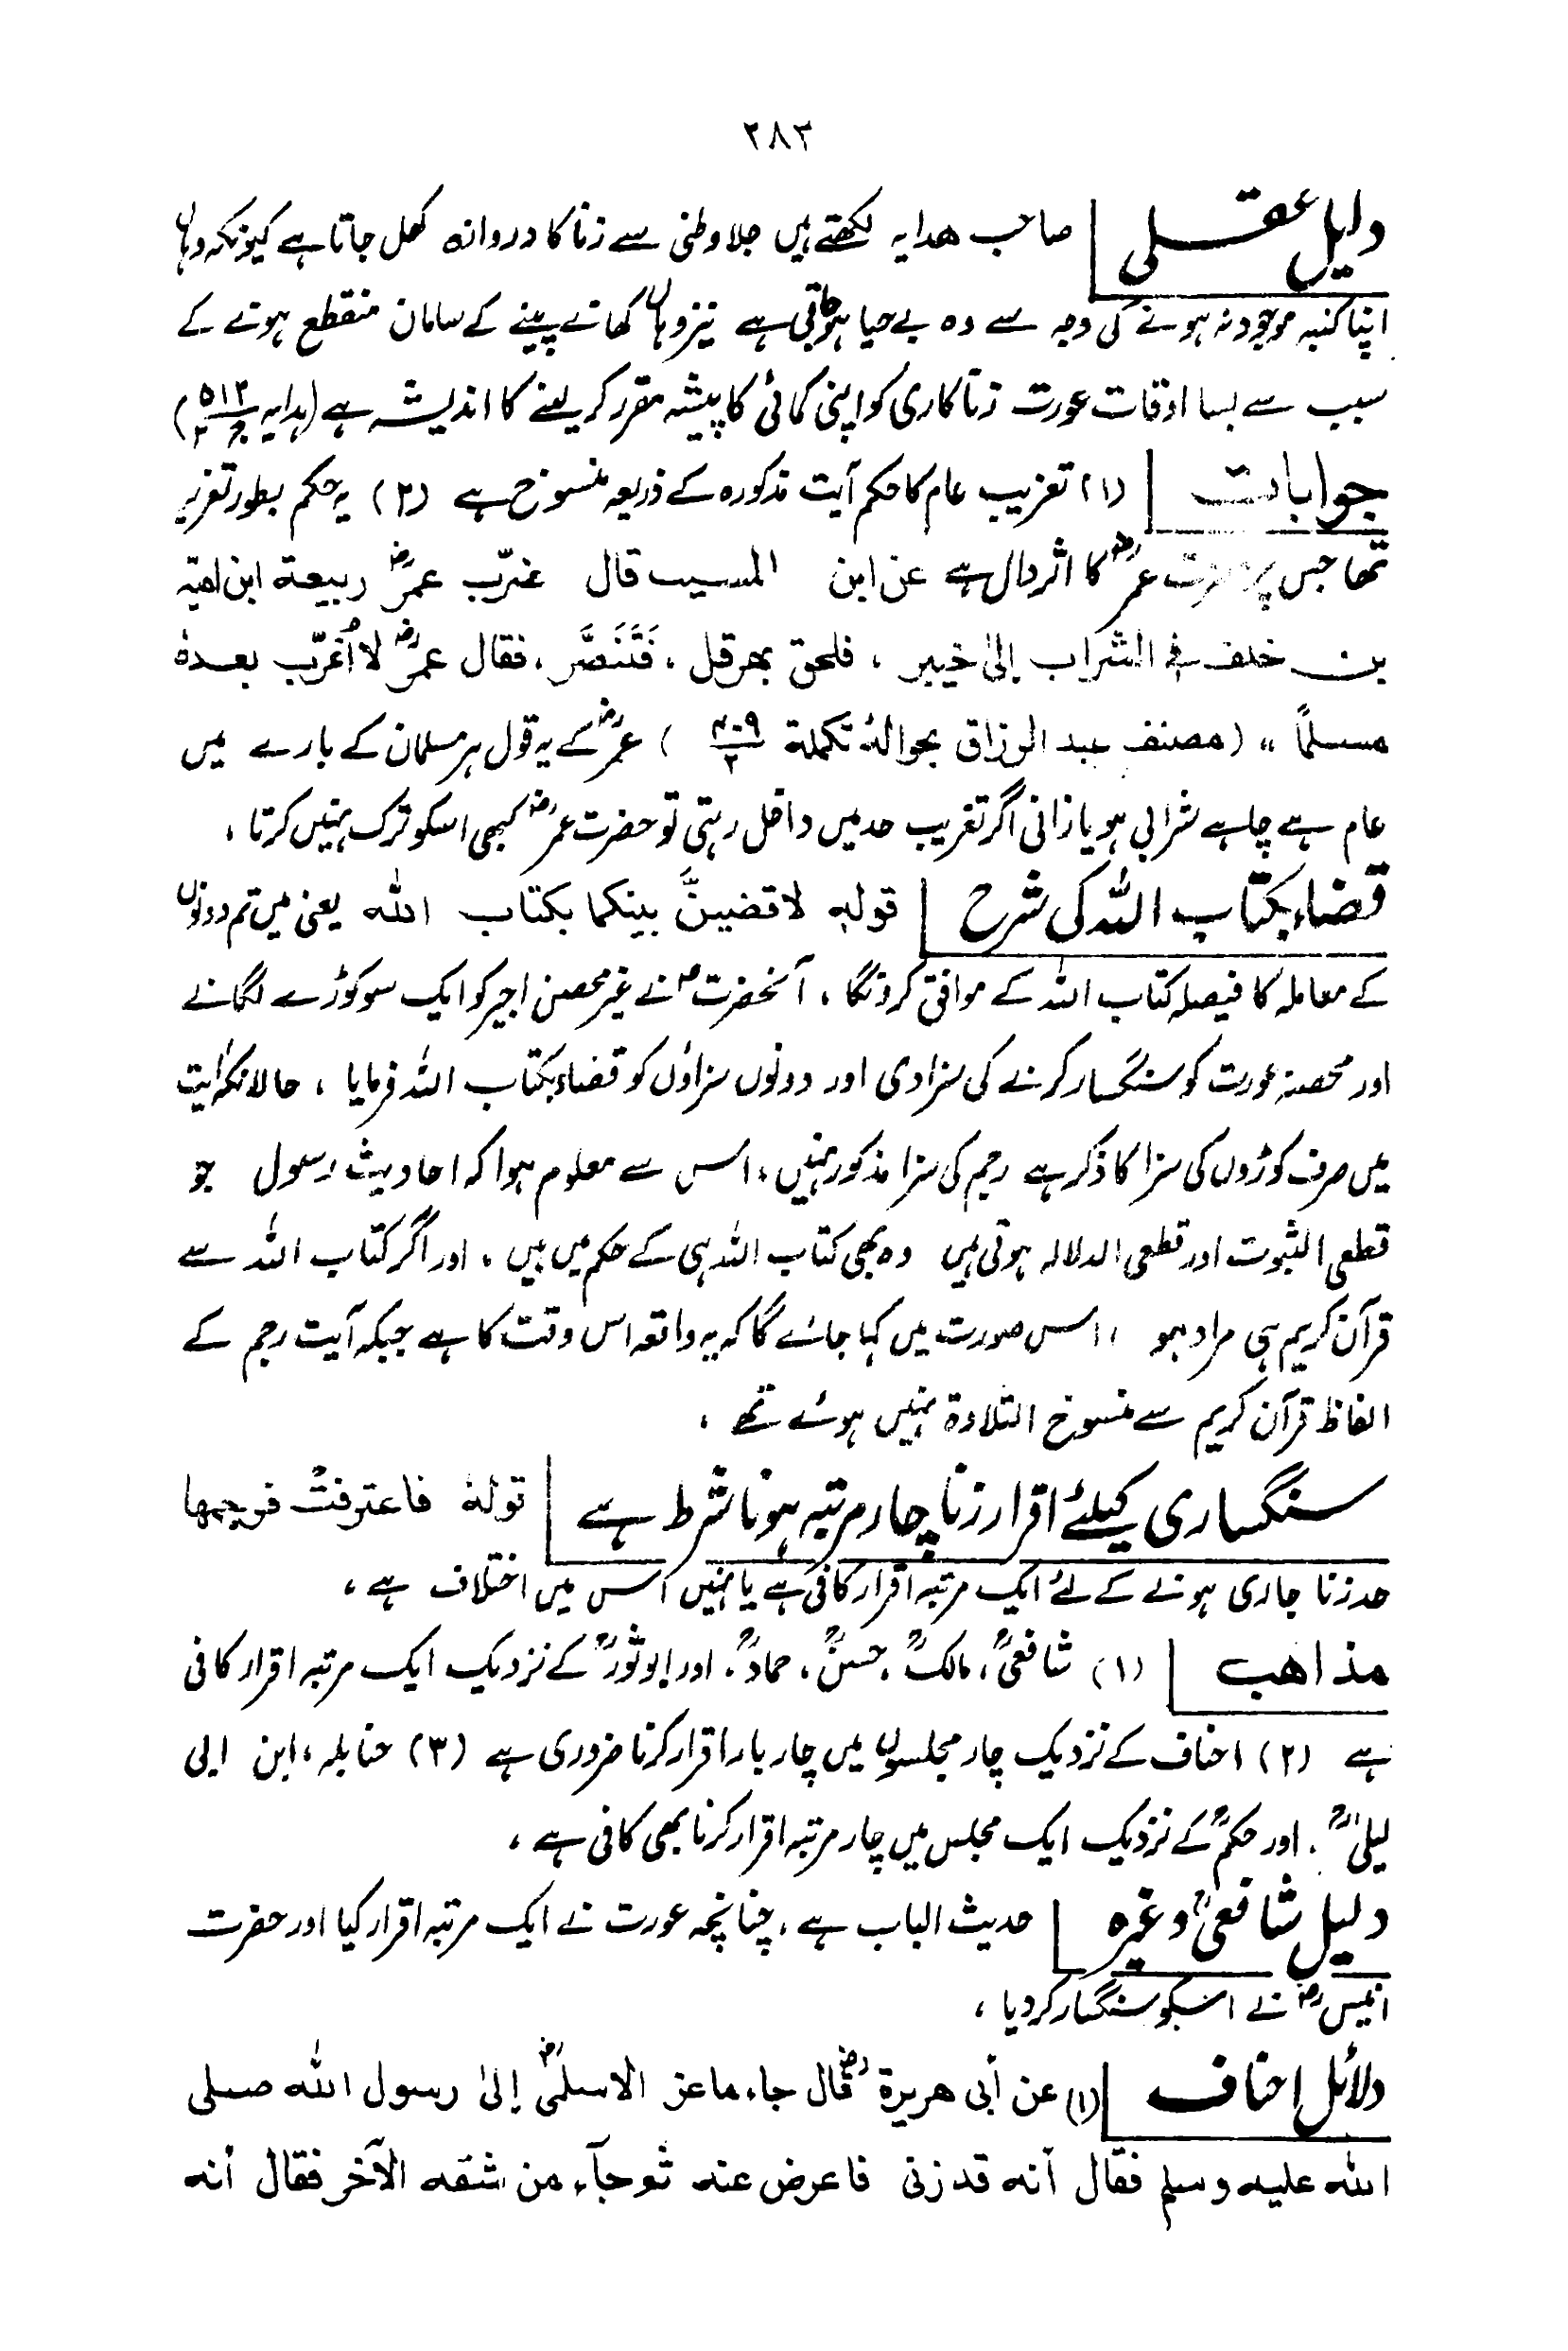 ۲۸۳
دلیل عقلی | صاحب ھدایہ لکھتے ہیں جلا وطنی سے زنا کا دروازہ کھل جاتا ہے کیونکہ وہاں
اپنا کنبہ موجود نہ ہونے کی وجہ سے وہ بے حیا ہوجاتی ہے نیز وہاں کھانے پینے کے سامان منقطع ہونے کے
سبب سے بسا اوقات عورت زنا کاری کو اپنی کمائی کا پیشہ مقرر کر لینے کا اندیشہ ہے (ہدایہ ج۲ ۵۱۲)
جوابات | (۱) تغریب عام کا حکم آیت مذکورہ کے ذریعہ منسوخ ہے (۲) یہ حکم بطور تعزیر
تھا جس پر حضرت عمرؓ کا اثر دال ہے عن ابن المسیب قال غرّب عمرؓ ربیعة ابن امیّہ
بن خلف فی الشراب إلیٰ خیبر ، فلحق بھرقل ، فَتَنَصَّر ، فقال عمرؓ لا أُغرّب بعدہٗ
مسلماً ،، (مصنف عبد الرزاق بحوالۂ تکملة ۴۰۹/۲ ) عمرؓ کے یہ قول ہر مسلمان کے بارے میں
عام ہے چاہے شرابی ہو یا زانی اگر تغریب حد میں داخل رہتی تو حضرت عمرؓ کبھی اسکو ترک نہیں کرتا ،
قضاء بکتاب اللہ کی شرح | قولہٖ لاقضینَّ بینکما بکتاب اللہ یعنی میں تم دونوں
کے معاملہ کا فیصلہ کتاب اللہ کے موافق کرونگا ، آنحضرتؐ نے غیر محصن اجیر کو ایک سو کوڑے لگانے
اور محصنہ عورت کو سنگسار کرنے کی سزا دی اور دونوں سزاؤں کو قضاء بکتاب اللہ فرمایا ، حالانکہ آیت
میں صرف کوڑوں کی سزا کا ذکر ہے رجم کی سزا مذکور نہیں ، اس سے معلوم ہوا کہ احادیث رسول جو
قطعی الثبوت اور قطعی الدلالہ ہوتی ہیں وہ بھی کتاب اللہ ہی کے حکم میں ہیں ، اور اگر کتاب اللہ سے
قرآن کریم ہی مراد ہو ، اس صورت میں کہا جائے گا کہ یہ واقعہ اس وقت کا ہے جبکہ آیت رجم کے
الفاظ قرآن کریم سے منسوخ التلاوة نہیں ہوئے تھے ،
سنگساری کیلئے اقرار زنا چار مرتبہ ہونا شرط ہے | قولہٗ فاعترفتْ فرجمها
حد زنا جاری ہونے کے لئے ایک مرتبہ اقرار کافی ہے یا نہیں اس میں اختلاف ہے ،
مذاهب | (۱) شافعیؒ ، مالکؒ ، حسنؒ ، حمادؒ ، اور ابو ثورؒ کے نزدیک ایک مرتبہ اقرار کافی
ہے (۲) احناف کے نزدیک چار مجلسوں میں چار بار اقرار کرنا ضروری ہے (۳) حنابلہ ، ابن ابی
لیلیٰؒ ، اور حکمؒ کے نزدیک ایک مجلس میں چار مرتبہ اقرار کرنا بھی کافی ہے ،
دلیل شافعیؒ وغیرہ | حدیث الباب ہے ، چنانچہ عورت نے ایک مرتبہ اقرار کیا اور حضرت
انیسؓ نے اسکو سنگسار کر دیا ،
دلائل احناف | (۱) عن أبی هریرةؓ قال جاء ماعز الاسلمیؓ إلیٰ رسول اللہ صلی
اللہ علیہ وسلم فقال أنه قد زنی فاعرض عنہ ثم جآء من شقه الآخر فقال أنه